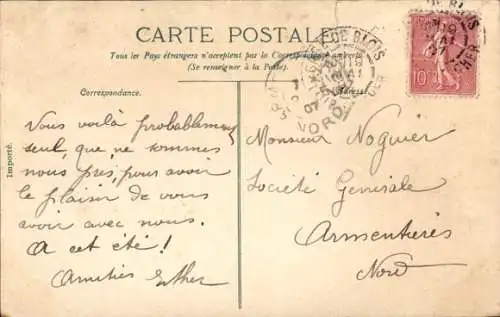 CARTE POSTALE
Tous les Pays étrangers n'acceptent pas la Correspondance au verso
(Se renseigner à la Poste).
Correspondance.
Importé.
Vous voilà probablement
seul, que ne sommes
nous près, pour avoir
le plaisir de vous
avoir avec nous.
A cet été!
Amitiés Esther
10
07
NORD
Monsieur Noguier
Société Generale
Armentières
Nord